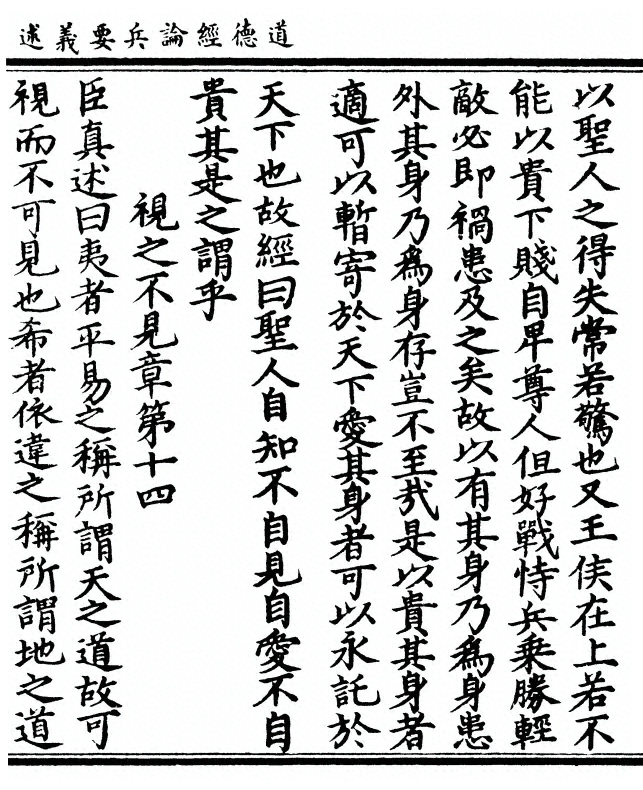 道德經論兵要義述
以聖人之得失常若驚也又王侯在上若不
能以貴下賤自卑尊人但好戰恃兵乗勝輕
敵必即禍患及之矣故以有其身乃爲身患
外其身乃爲身存豈不至哉是以貴其身者
適可以暫寄於天下愛其身者可以永託於
天下也故經曰聖人自知不自見自愛不自
貴其是之謂乎
視之不見章第十四
臣真述曰夷者平易之稱所謂天之道故可
視而不可見也希者依違之稱所謂地之道